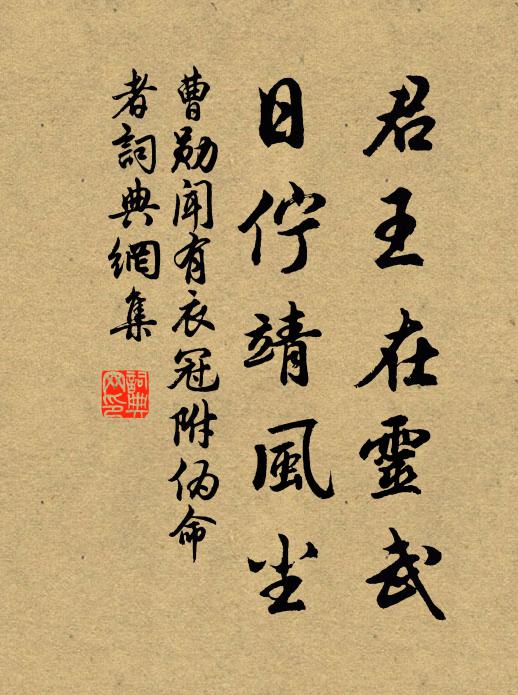 君王在靈武
日佇靖風尘
曹勛聞有衣冠附伪命
者詞典網集
詞典